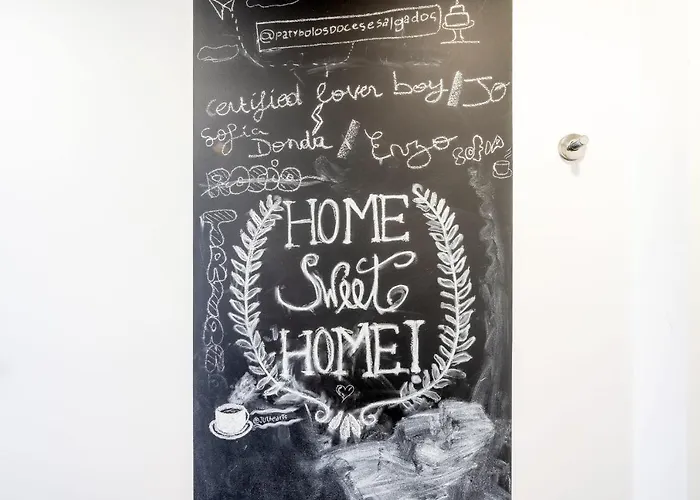 @patybolosdocesesalgados
certified lover boy / Jo
Sofia
Donda / Enzo
SOFIA
HOME
Sweet
HOME!